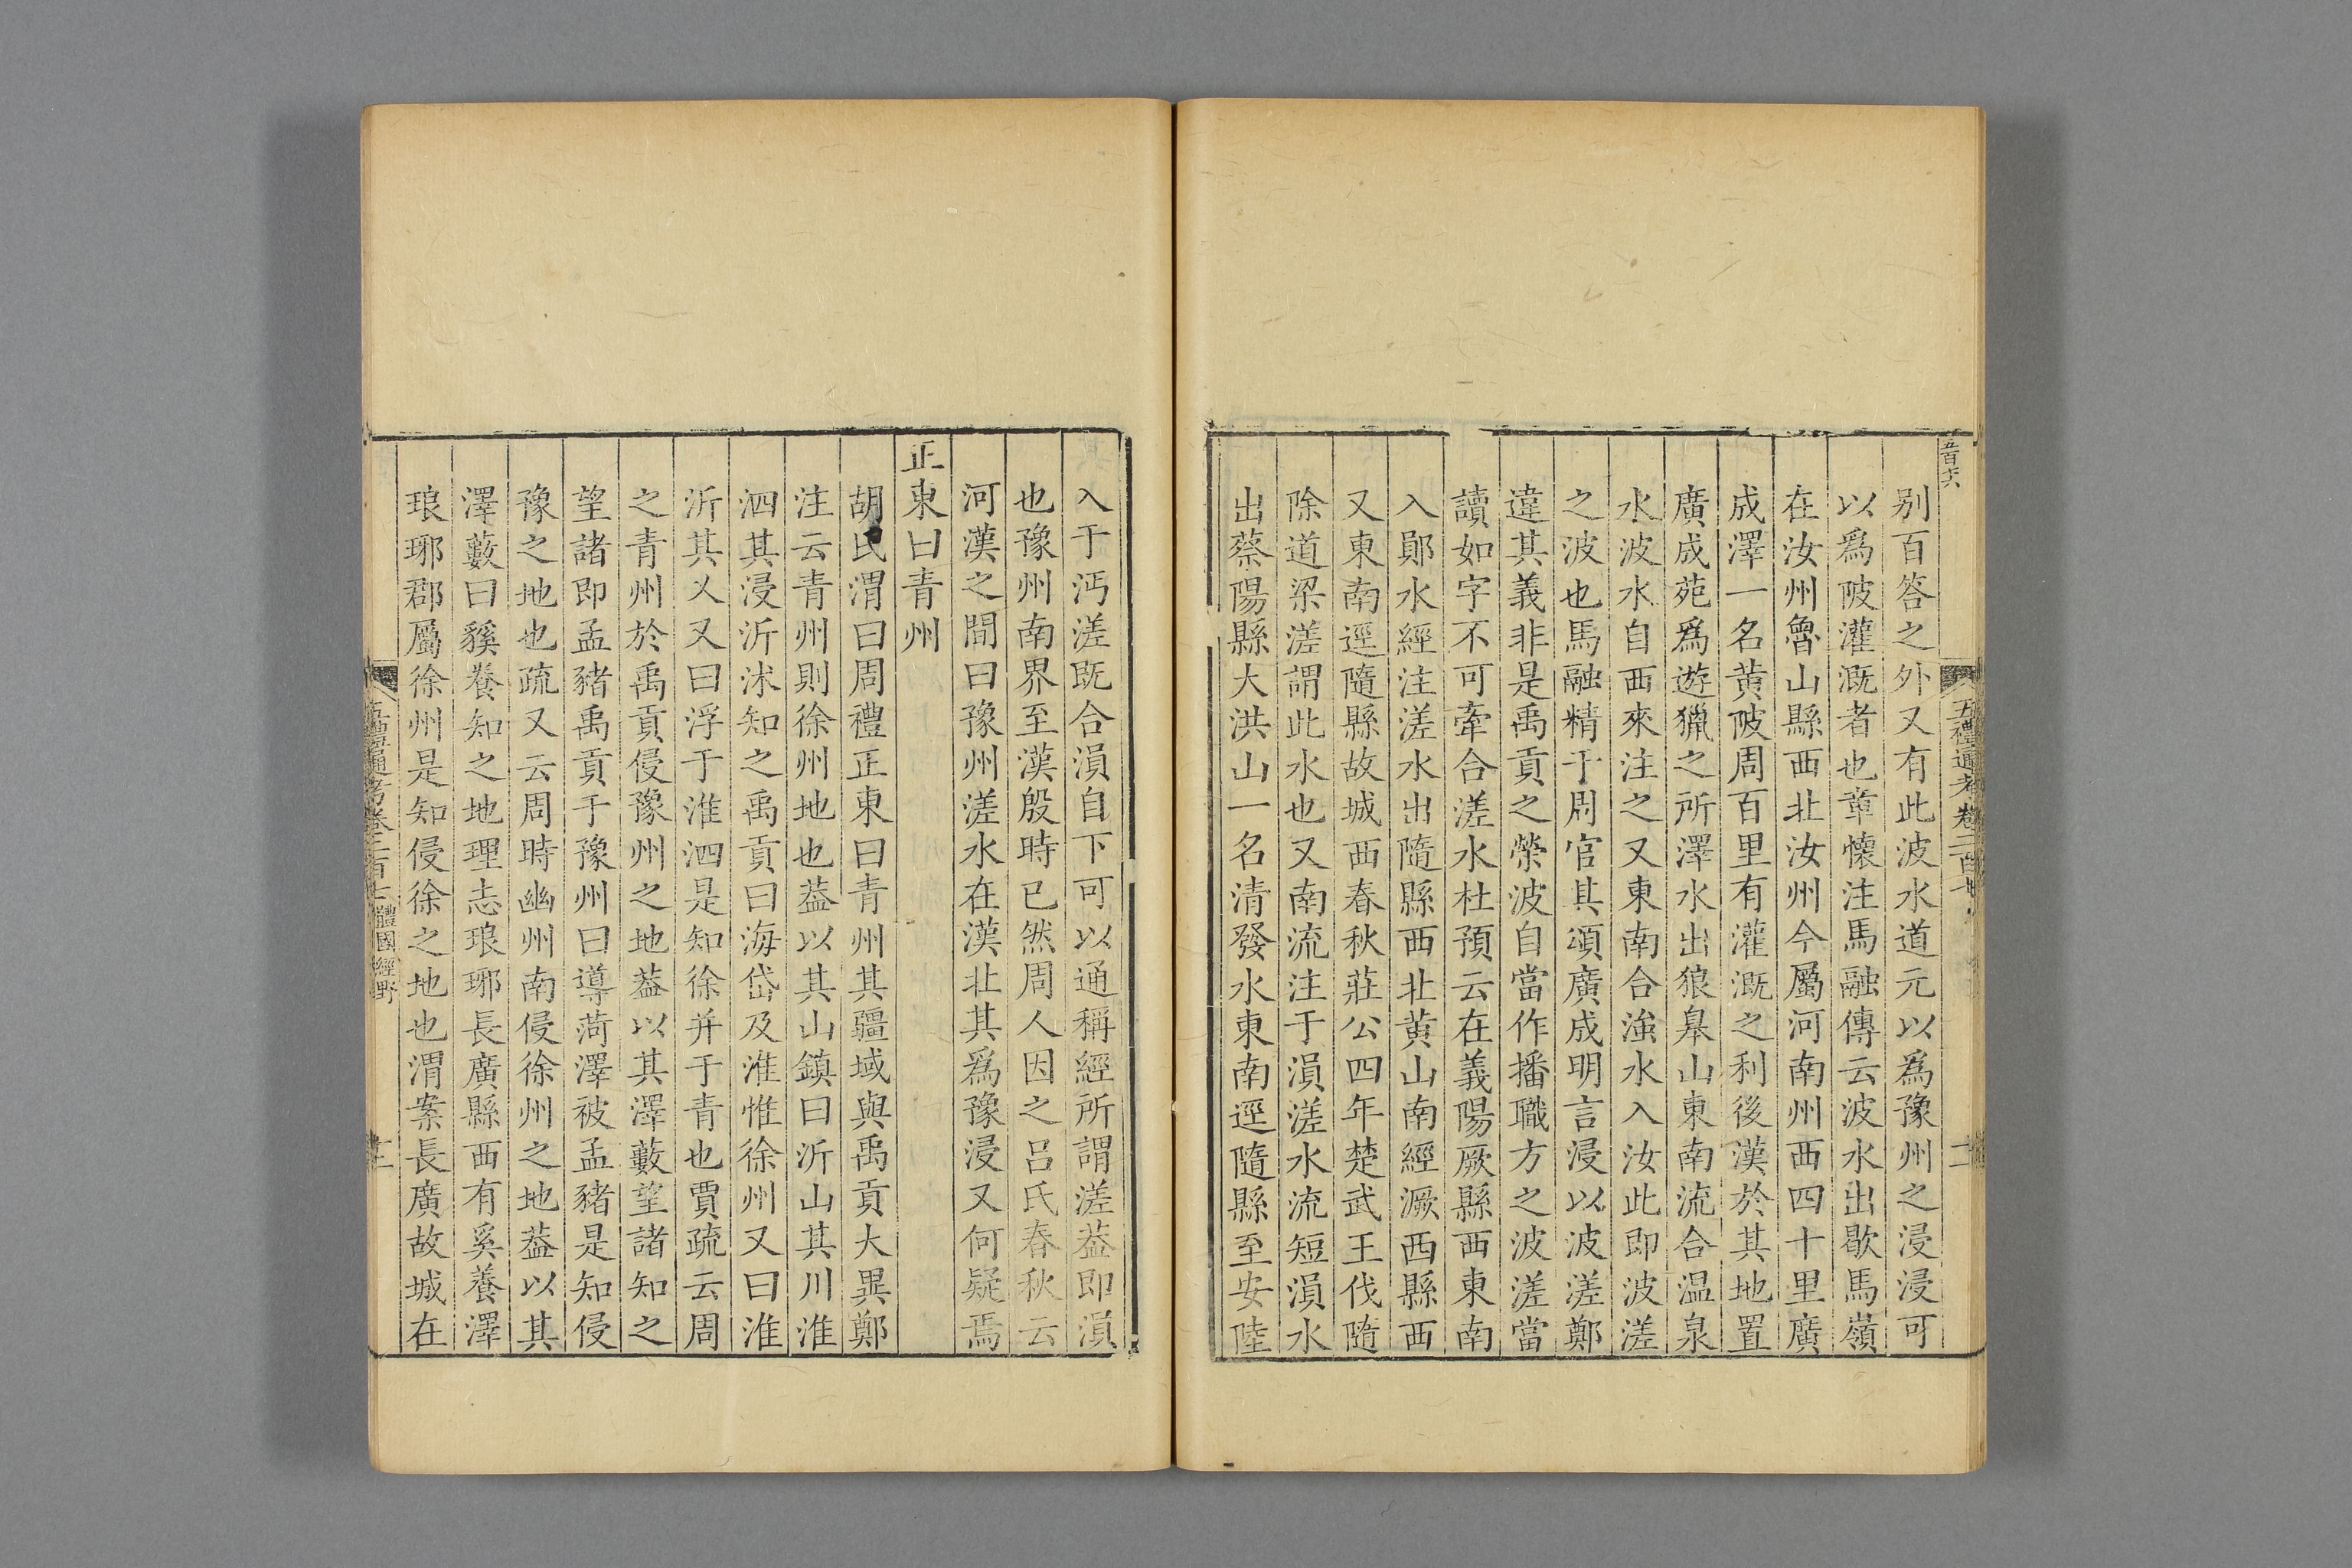 五百六
五禮通考卷二百七
二
别百答之外又有此波水道元以爲豫州之浸浸可
以爲陂灌溉者也章懷注馬融傳云波水出歇馬嶺
在汝州魯山縣西北汝州今屬河南州西四十里廣
成澤一名黄陂周百里有灌溉之利後漢於其地置
廣成苑爲遊獵之所澤水出狼臯山東南流合温泉
水波水自西來注之又東南合滍水入汝此即波溠
之波也馬融精于周官其頌廣成明言浸以波溠鄭
違其義非是禹貢之滎波自當作播職方之波溠當
讀如字不可牽合溠水杜預云在義陽厥縣西東南
入鄖水經注溠水出隨縣西北黄山南經㵐西縣西
又東南逕隨縣故城西春秋莊公四年楚武王伐隨
除道梁溠謂此水也又南流注于溳溠水流短溳水
出蔡陽縣大洪山一名清發水東南逕隨縣至安陸
入于沔溠既合溳自下可以通稱經所謂溠葢即溳
也豫州南界至漢殷時已然周人因之呂氏春秋云
河漢之間曰豫州溠水在漢北其爲豫浸又何疑焉
正東曰青州
胡氏渭曰周禮正東曰青州其疆域與禹貢大異鄭
注云青州則徐州地也葢以其山鎮曰沂山其川淮
泗其浸沂沭知之禹貢曰海岱及淮惟徐州又曰淮
沂其乂又曰浮于淮泗是知徐并于青也賈疏云周
之青州於禹貢侵豫州之地葢以其澤藪望諸知之
望諸即孟豬禹貢于豫州曰導菏澤被孟豬是知侵
豫之地也疏又云周時幽州南侵徐州之地葢以其
澤藪曰貕養知之地理志琅琊長廣縣西有奚養澤
琅琊郡屬徐州是知侵徐之地也渭案長廣故城在
五禮通考卷二百七
體國經野